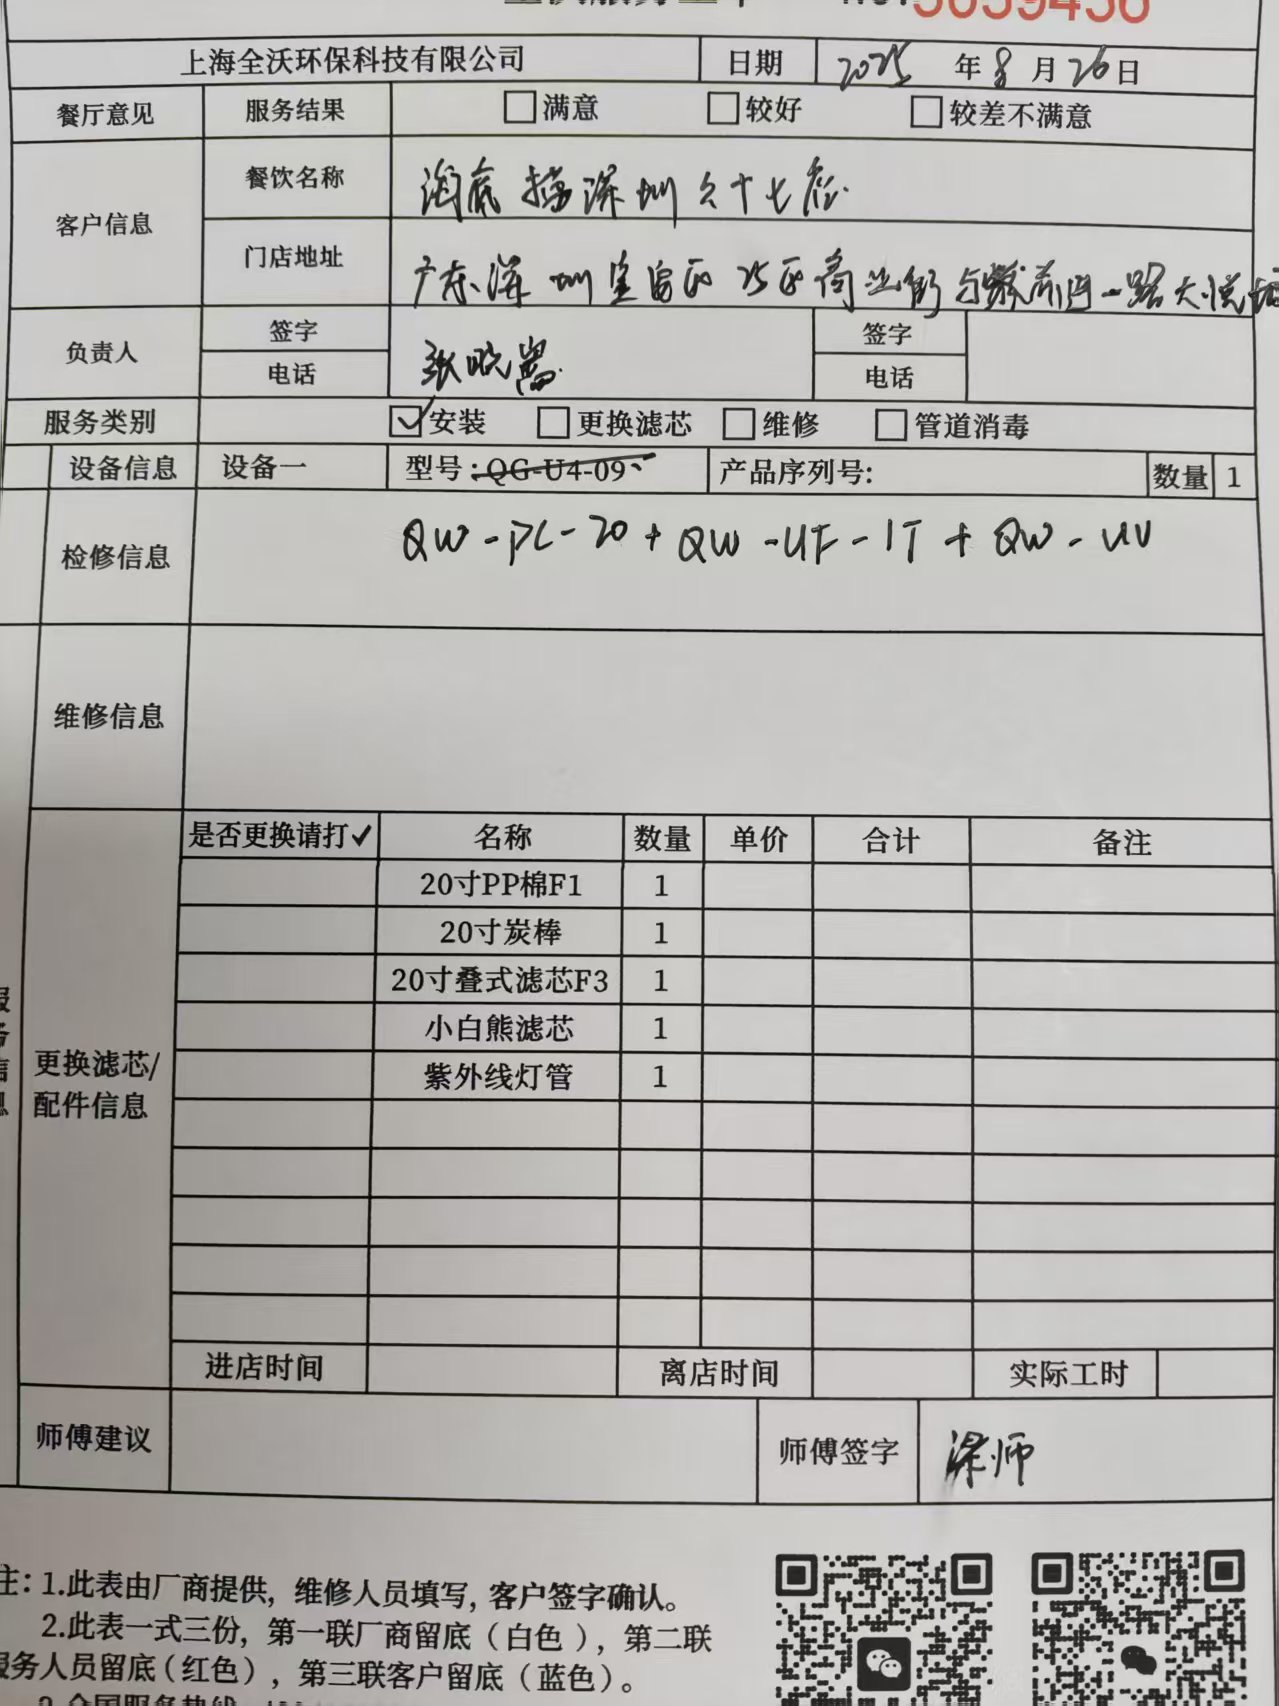 NO.5659456
上海全沃环保科技有限公司 日期 2025 年 8 月 26 日
餐厅意见 服务结果 满意 较好 较差不满意
客户信息 餐饮名称 深圳 十七
门店地址 广东深圳宝安区25区商业街与 一路大悦城
负责人 签字 张晓嵩 签字
电话 电话
服务类别 ✓安装 更换滤芯 维修 管道消毒
设备信息 设备一 型号:QG-U4-09 产品序列号: 数量 1
检修信息 QW-PC-20+QW-UF-1T+QW-UV
维修信息
是否更换请打✓ 名称 数量 单价 合计 备注
20寸PP棉F1 1
20寸炭棒 1
20寸叠式滤芯F3 1
小白熊滤芯 1
紫外线灯管 1
更换滤芯/
配件信息
进店时间 离店时间 实际工时
师傅建议 师傅签字 梁师
注:1.此表由厂商提供,维修人员填写,客户签字确认。
2.此表一式三份,第一联厂商留底(白色),第二联
服务人员留底(红色),第三联客户留底(蓝色)。